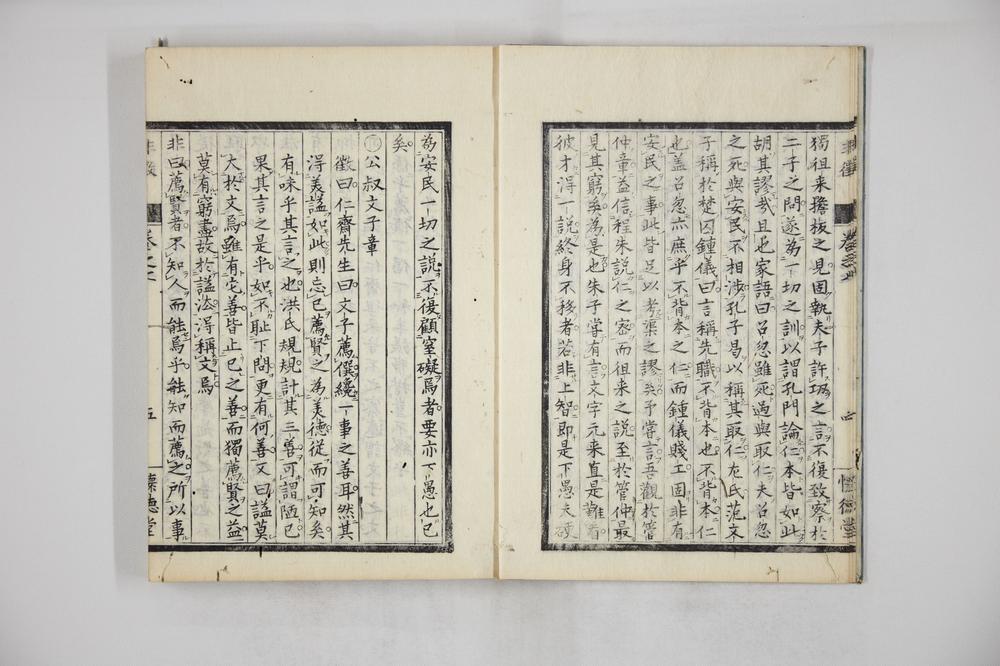 獨徂来擔板之見固執夫子許㘴之言不復致察於
二子之問遂為一切之訓以謂孔門論仁本皆如此
胡其謬哉且也家語曰召忽雖死過與取仁夫召忽
之死與安民不相涉孔子曷以稱其取仁左氏范文
子稱於楚囚鍾儀曰言稱先職不背本也不背本仁
也盖召忽亦庶乎不背本之仁而鍾儀賤工固非有
安民之事此皆足以考渠之謬矣予甞言吾觀於管
仲章益信程朱說仁之宻而徂来之說至於管仲最
見其窮矣為是也朱子甞有言文字元来直是難看
彼才淂一說終身不移者若非上智即是下愚夫硬
為安民一切之說不復顧窒礙焉者要亦下愚也已
矣
公叔文子章
徵曰仁齋先生曰文子薦僎纔一事之善耳然其
淂美謚如此則忘已薦賢之為美德従而可知矣
有味乎其言之也洪氏規規計其三善可謂陋已
果其言之是乎如不耻下問更有何善又曰謚莫
大於文焉雖有它善皆止已之善而獨薦賢之益
莫有窮盡故於謚法淂稱文焉
非曰薦賢者不知人而能焉乎能知而薦之所以事
非徵
五
懐德堂